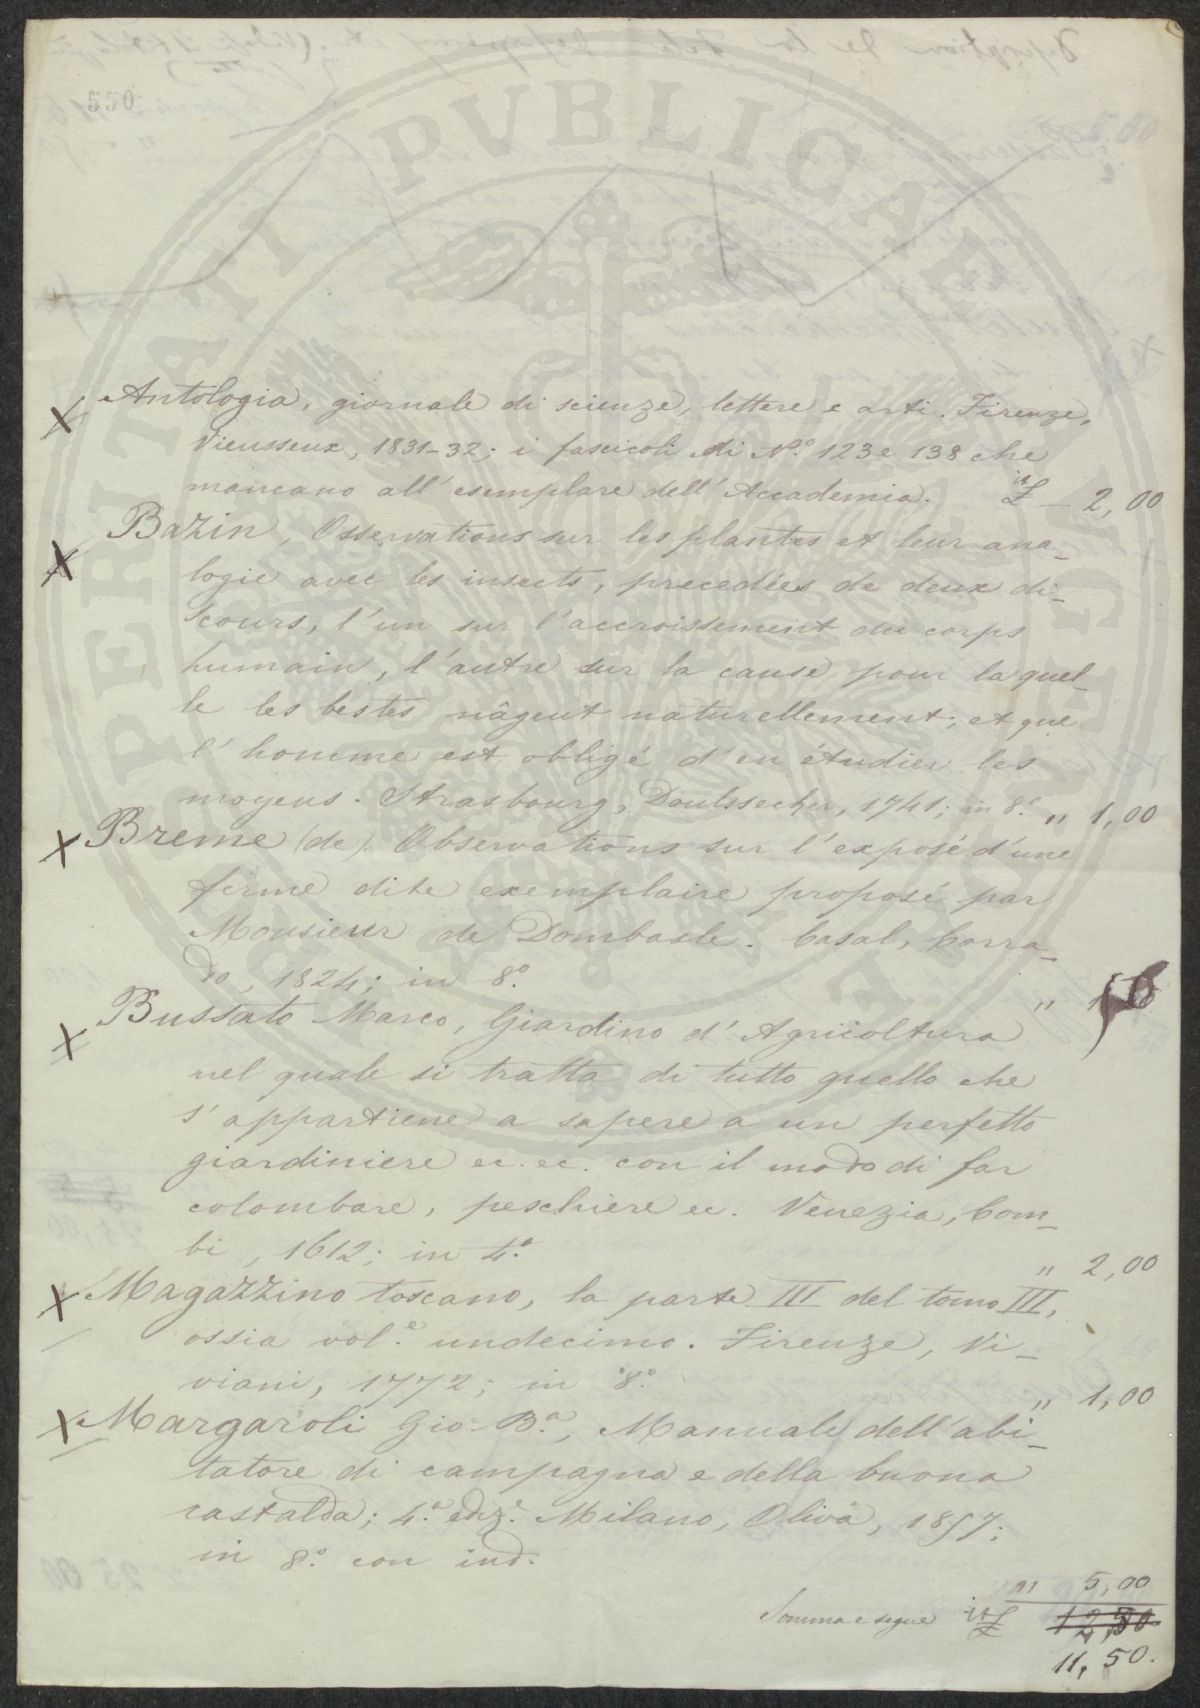 550
X Antologia, giornale di scienze, lettere e arti. Firenze,
Vieusseux, 1831-32; i fascicoli di N.o 123 e 138 che
mancano all'esemplare dell'Accademia. it £ — 2,00
X Bazin, Osservations sur les plantes et leur ana-
logie avec les insects, precedées de deux di-
scours, l'un sur l'accroissement du corps
humain, l'autre sur la cause pour la quel-
le les bestes nâgent naturellement; et que
l'homme est obligé d'en étudier les
moyens. Strasbourg, Doulssecher, 1741; in 8.o " 1,00
X Breme (de). Observations sur l'exposé d'une
ferme dite exemplaire proposé par
Monsieur de Dombasle. Casal, Corra-
do, 1824; in 8.o
"
X Bussato Marco, Giardino d'Agricoltura
nel quale si tratta di tutto quello che
s'appartiene a sapere a un perfetto
giardiniere ec. ec. con il modo di far
colombare, peschiere ec. Venezia, Com-
bi, 1612; in 4.o " 2,00
X Magazzino toscano, la parte III del tomo III,
ossia vol.e undecimo. Firenze, Vi-
viani, 1772; in 8.o " 1,00
X Margaroli Gio. B.a, Manuale dell'abi-
tatore di campagna e della buona
castalda; 4.a ediz.e Milano, Oliva, 1857;
in 8.o con ind.
" 5,00
Somma e segue it £ 12,50
11,50.
PERITATI PVBLICAE